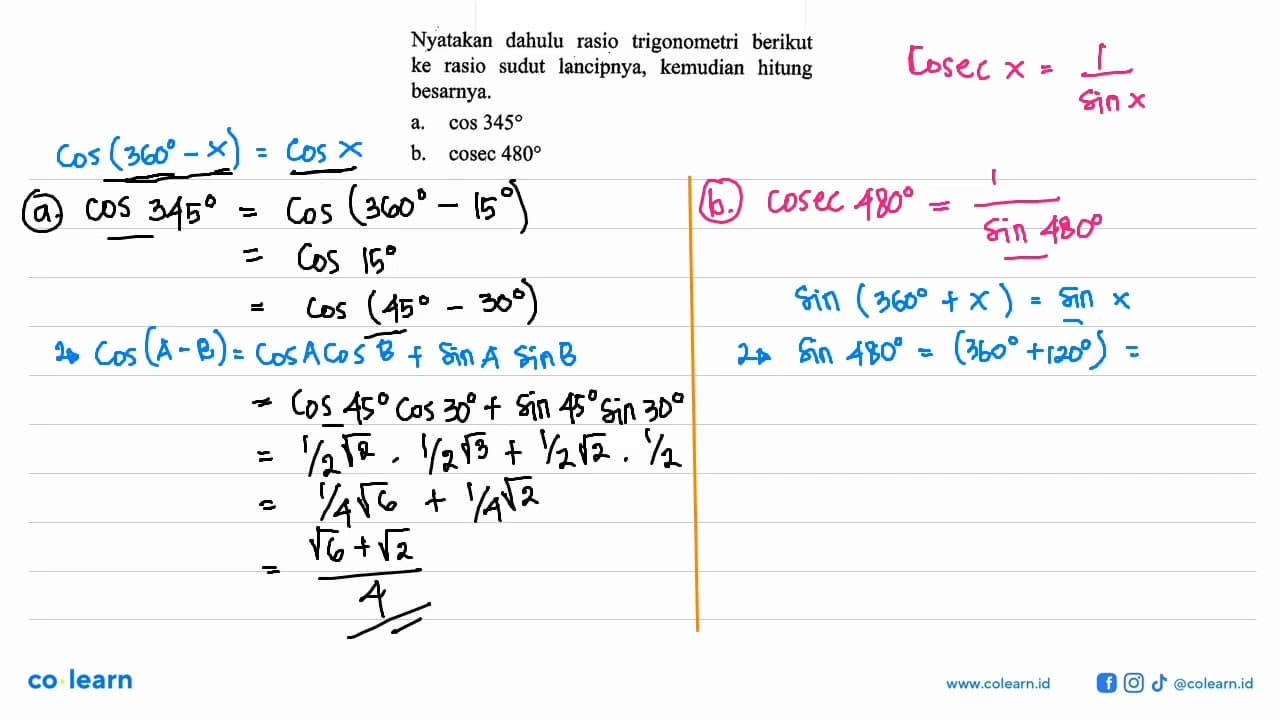 Nyatakan dahulu rasio trigonometri berikut
ke rasio sudut lancipnya, kemudian hitung
besarnya.
a. cos 345°
b. cosec 480°
Cosec x = 1/sin x
Cos (360° - x) = Cos x
a. Cos 345° = Cos (360° - 15°)
= Cos 15°
= Cos (45° - 30°)
Cos (A - B) = Cos A Cos B + Sin A Sin B
= Cos 45° Cos 30° + Sin 45° Sin 30°
= 1/2 √2 . 1/2 √3 + 1/2 √2 . 1/2
= 1/4 √6 + 1/4 √2
= √6 + √2 / 4
b. Cosec 480° = 1 / Sin 480°
Sin (360° + x) = Sin x
Sin 480° = (360° + 120°) =
co·learn
www.colearn.id
@colearn.id